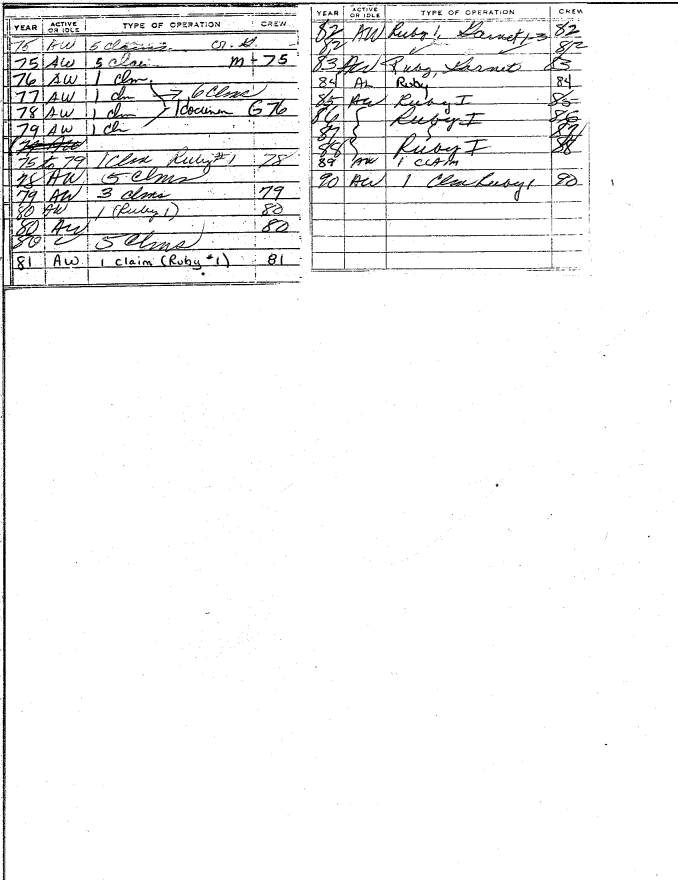 YEAR ACTIVE OR IDLE TYPE OF OPERATION CREW
75 AW 5 claims
75 AW 5 clai m - 75
76 AW 1 clm.
77 AW 1 clm → 6 Clms
78 AW 1 clm G 76
79 AW 1 clm
75 to 79 1 Clm Ruby #1 78
78 AW 5 Clms
79 AW 3 clms 79
80 AW 1 (Ruby 1) 80
80 AW 80
80 5 Clms
81 AW 1 claim (Ruby #1) 81
YEAR ACTIVE OR IDLE TYPE OF OPERATION CREW
82 AW Ruby 1, Garnet 1-3 82
82 82
83 AW Ruby, Garnet 83
84 AW Ruby 84
85 AW Ruby I 85
86 Ruby I 86
87 87
88 Ruby I 88
89 AW 1 CLAIM
90 AW 1 Clm Ruby 1 90